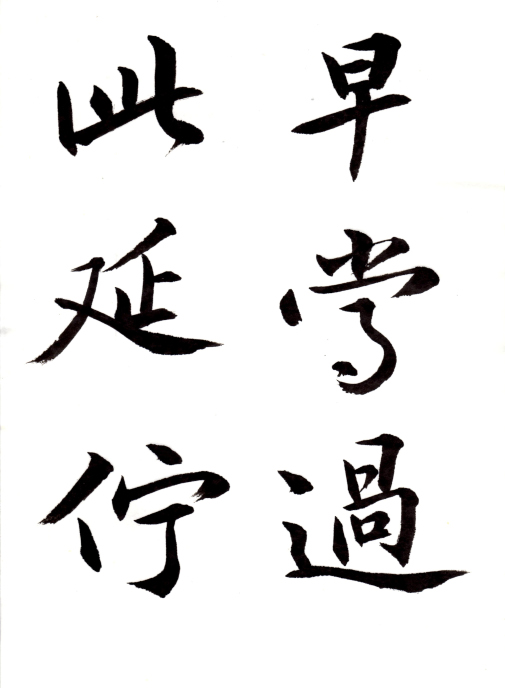 早當過
此延佇